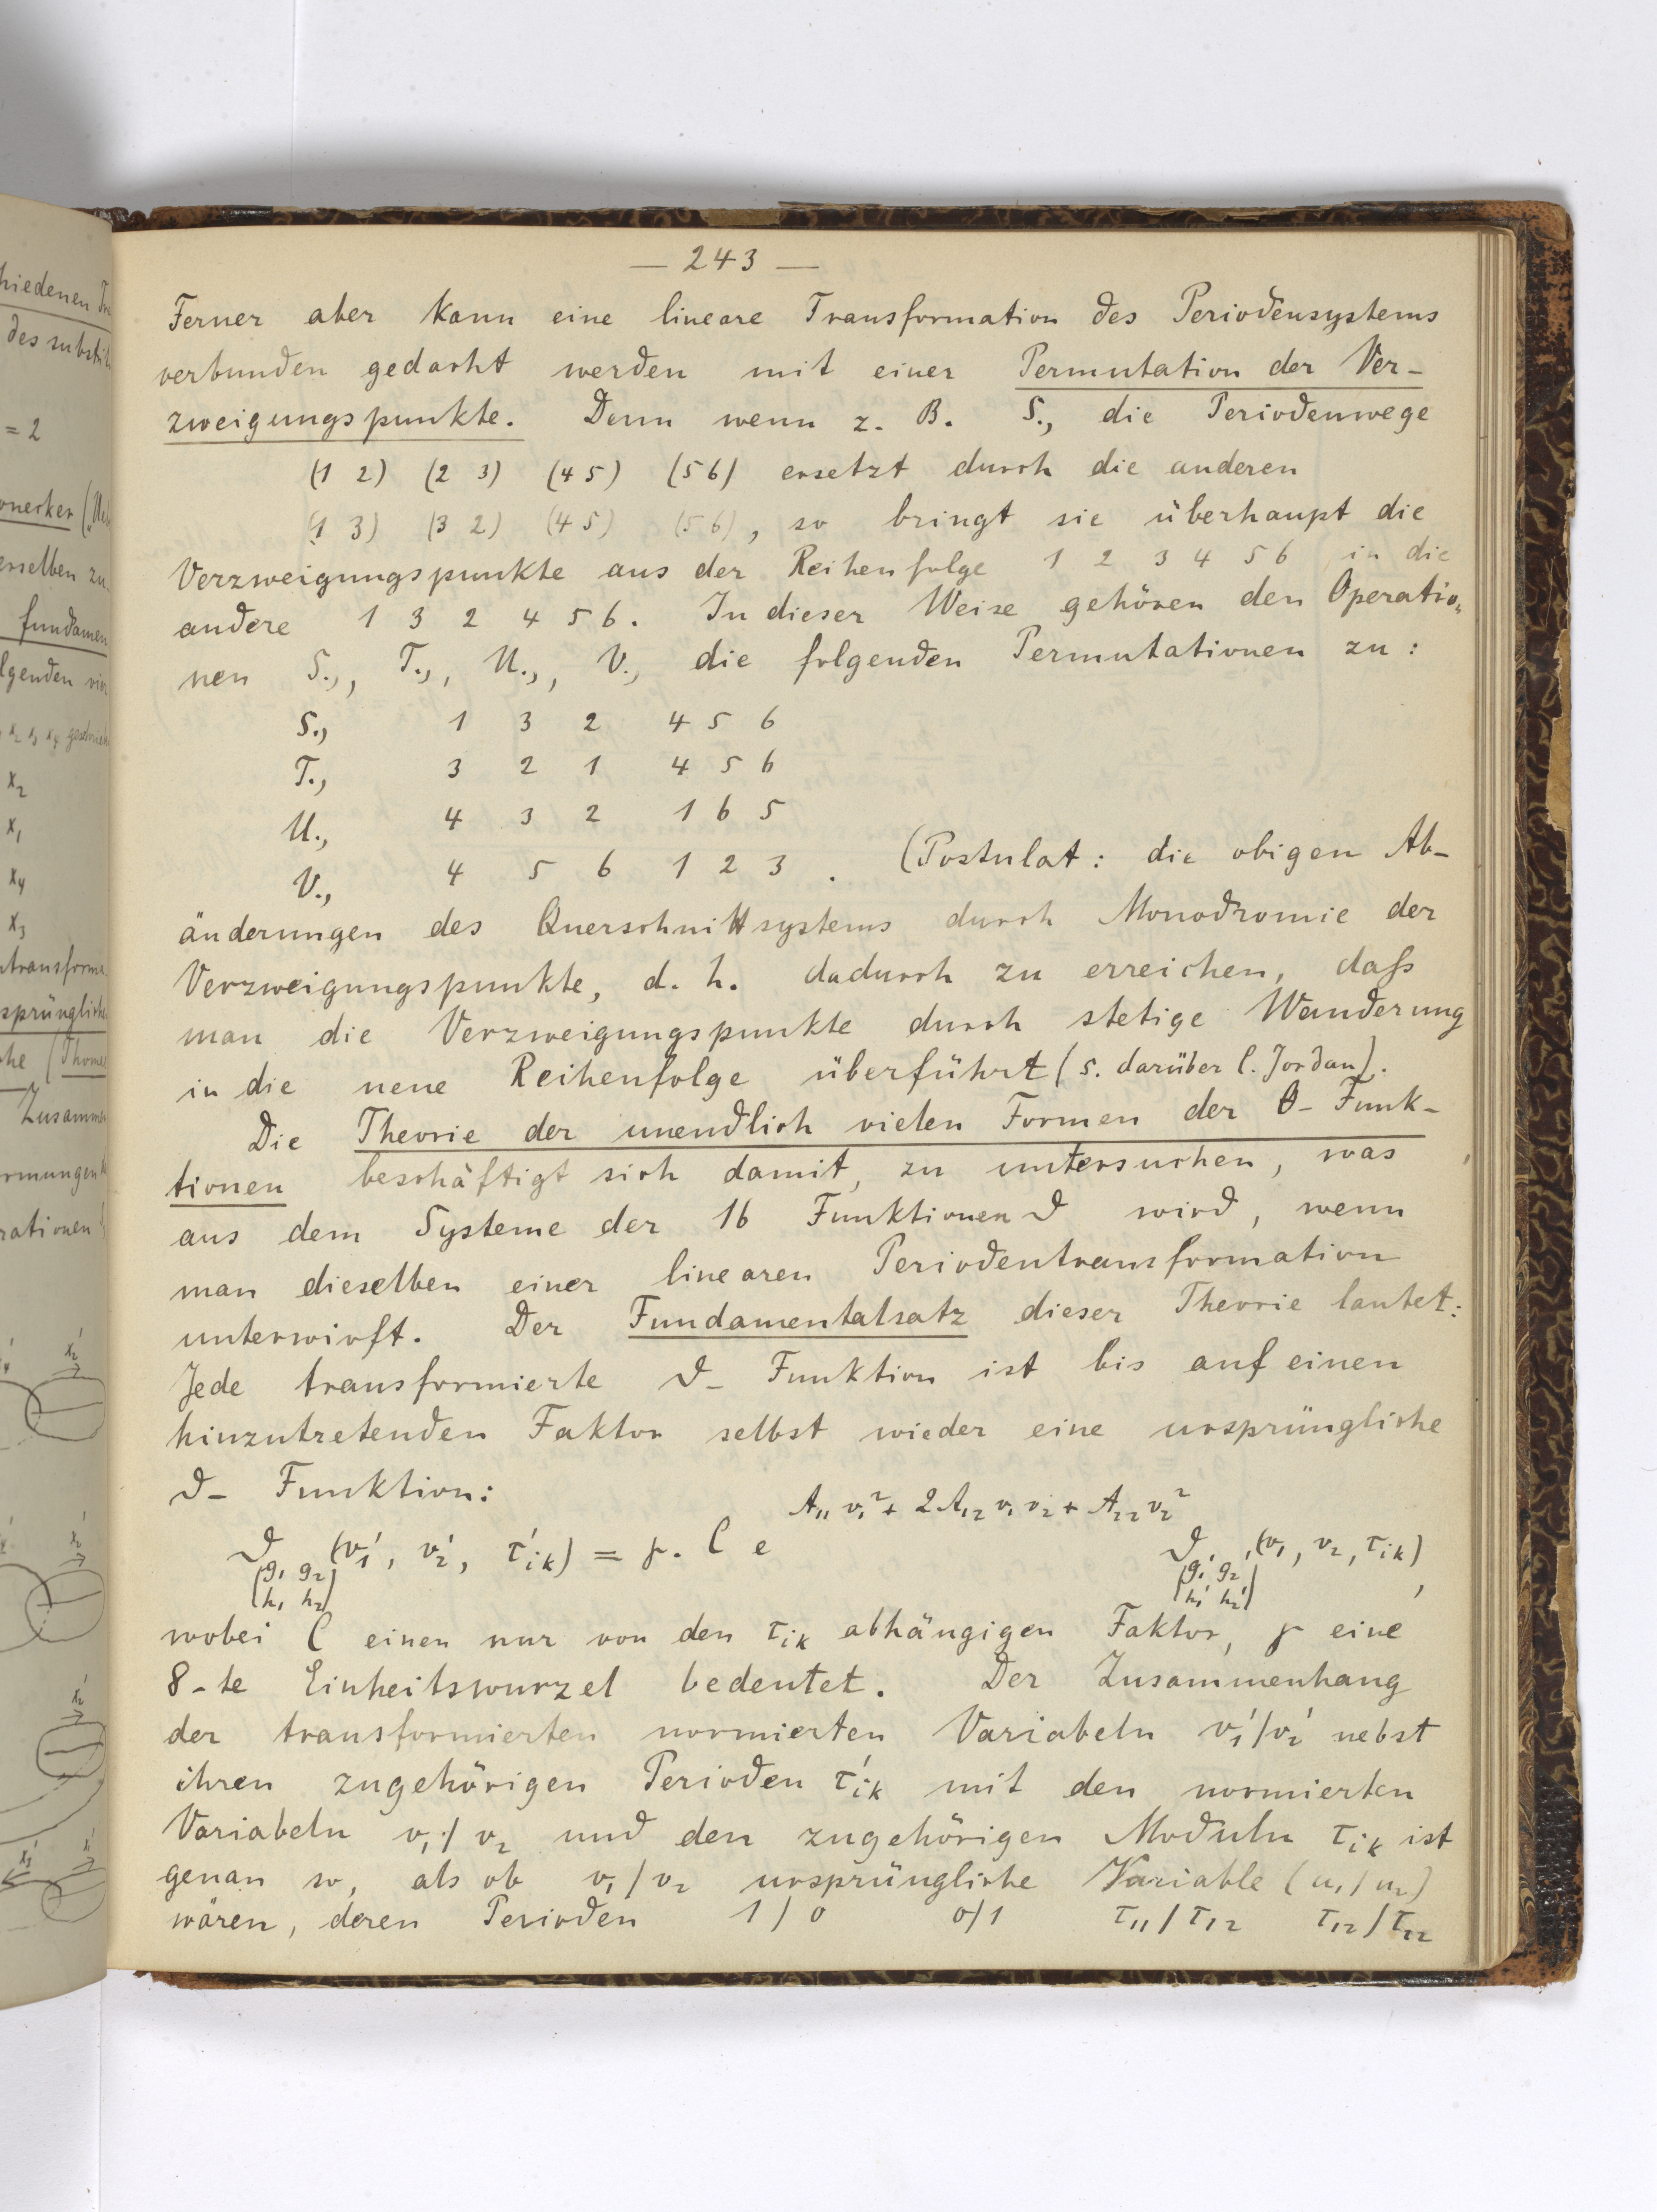 — 243 —
Ferner aber kann eine lineare Transformation des Periodensystems
verbunden gedacht werden mit einer Permutation der Ver-
zweigungspunkte. Denn wenn z. B. S., die Periodenwege
(1 2) (2 3) (4 5) (5 6) ersetzt durch die anderen
(1 3) (3 2) (4 5) (5 6), so bringt sie überhaupt die
Verzweigungspunkte aus der Reihenfolge 1 2 3 4 5 6 in die
andere 1 3 2 4 5 6. In dieser Weise gehören den Operatio-
nen S., , T., , U., , V., die folgenden Permutationen zu :
S., 1 3 2 4 5 6
T., 3 2 1 4 5 6
U., 4 3 2 1 6 5
V., 4 5 6 1 2 3 . (Postulat : die obigen Ab-
änderungen des Querschnittsystems durch Monodromie der
Verzweigungspunkte, d. h. dadurch zu erreichen, daß
man die Verzweigungspunkte durch stetige Wanderung
in die neue Reihenfolge überführt (s. darüber C. Jordan).
Die Theorie der unendlich vielen Formen der θ- Funk-
tionen beschäftigt sich damit, zu untersuchen, was
aus dem Systeme der 16 Funktionen ϑ wird, wenn
man dieselben einer linearen Periodentransformation
unterwirft. Der Fundamentalsatz dieser Theorie lautet:
Jede transformierte ϑ- Funktion ist bis auf einen
hinzutretenden Faktor selbst wieder eine ursprüngliche
ϑ- Funktion:
ϑ_{|g₁ g₂ / h₁ h₂|}(v₁', v₂', τ'ᵢₖ) = γ. C e^{A₁₁v₁² + 2A₁₂v₁v₂ + A₂₂v₂²} ϑ_{|g₁' g₂' / h₁' h₂'|}(v₁, v₂, τᵢₖ),
wobei C einen nur von den τᵢₖ abhängigen Faktor, γ eine
8-te Einheitswurzel bedeutet. Der Zusammenhang
der transformierten normierten Variabeln v₁'/v₂' nebst
ihren zugehörigen Perioden τ'ᵢₖ mit den normierten
Variabeln v₁/v₂ und den zugehörigen Moduln τᵢₖ ist
genau so, als ob v₁/v₂ ursprüngliche Variable (u₁/u₂)
wären, deren Perioden 1/0 0/1 τ₁₁/τ₁₂ τ₁₂/τ₂₂